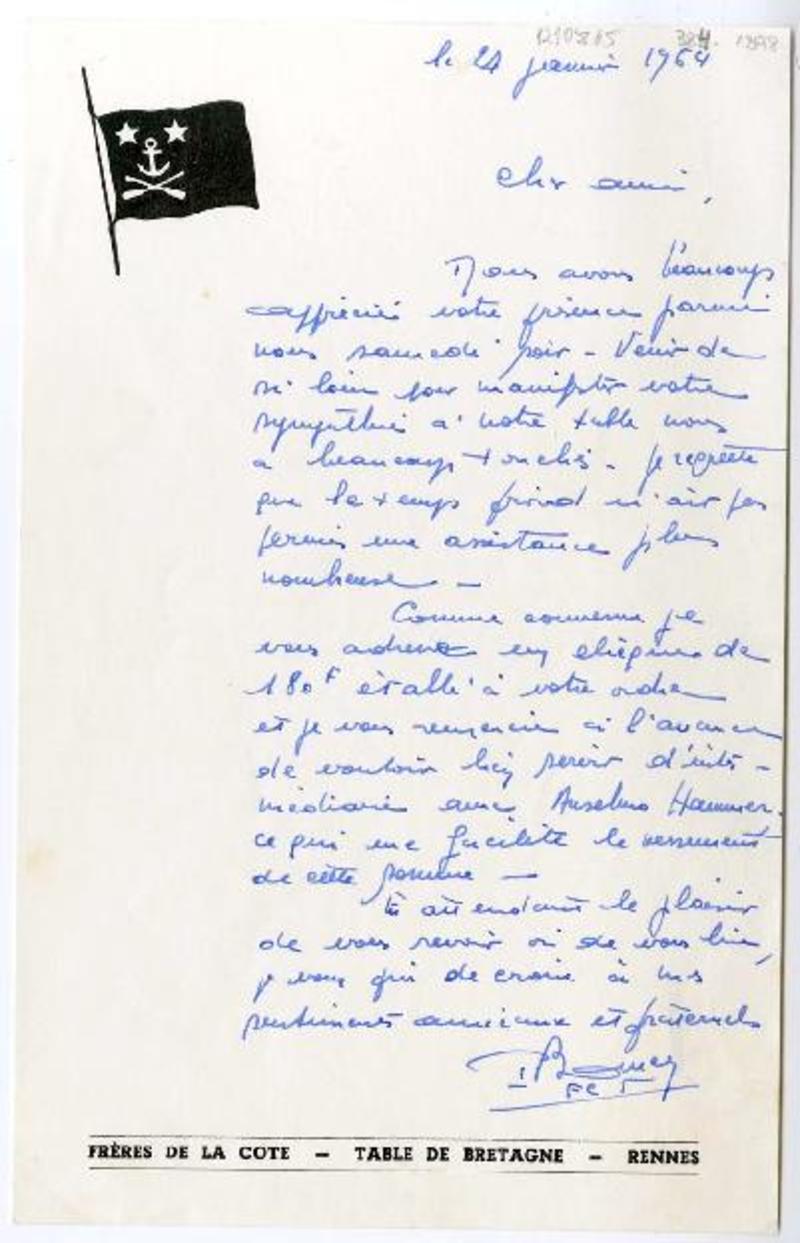 le 24 janvier 1964
Cher ami,
Nous avons beaucoup
apprécié votre présence parmi
nous samedi soir - Venir de
si loin pour manifester votre
sympathie à notre table nous
a beaucoup touchés. Je regrette
que le temps froid n'ait pas
permis une assistance plus
nombreuse -
Comme convenu je
vous adresse un chèque de
180 F établi à votre ordre
et je vous remercie à l'avance
de vouloir bien servir d'inter-
médiaire avec Anselmo Hammer.
ce qui me facilite le versement
de cette somme -
En attendant le plaisir
de vous revoir ou de vous lire,
je vous prie de croire à mes
sentiments amicaux et fraternels
FRÈRES DE LA COTE - TABLE DE BRETAGNE - RENNES